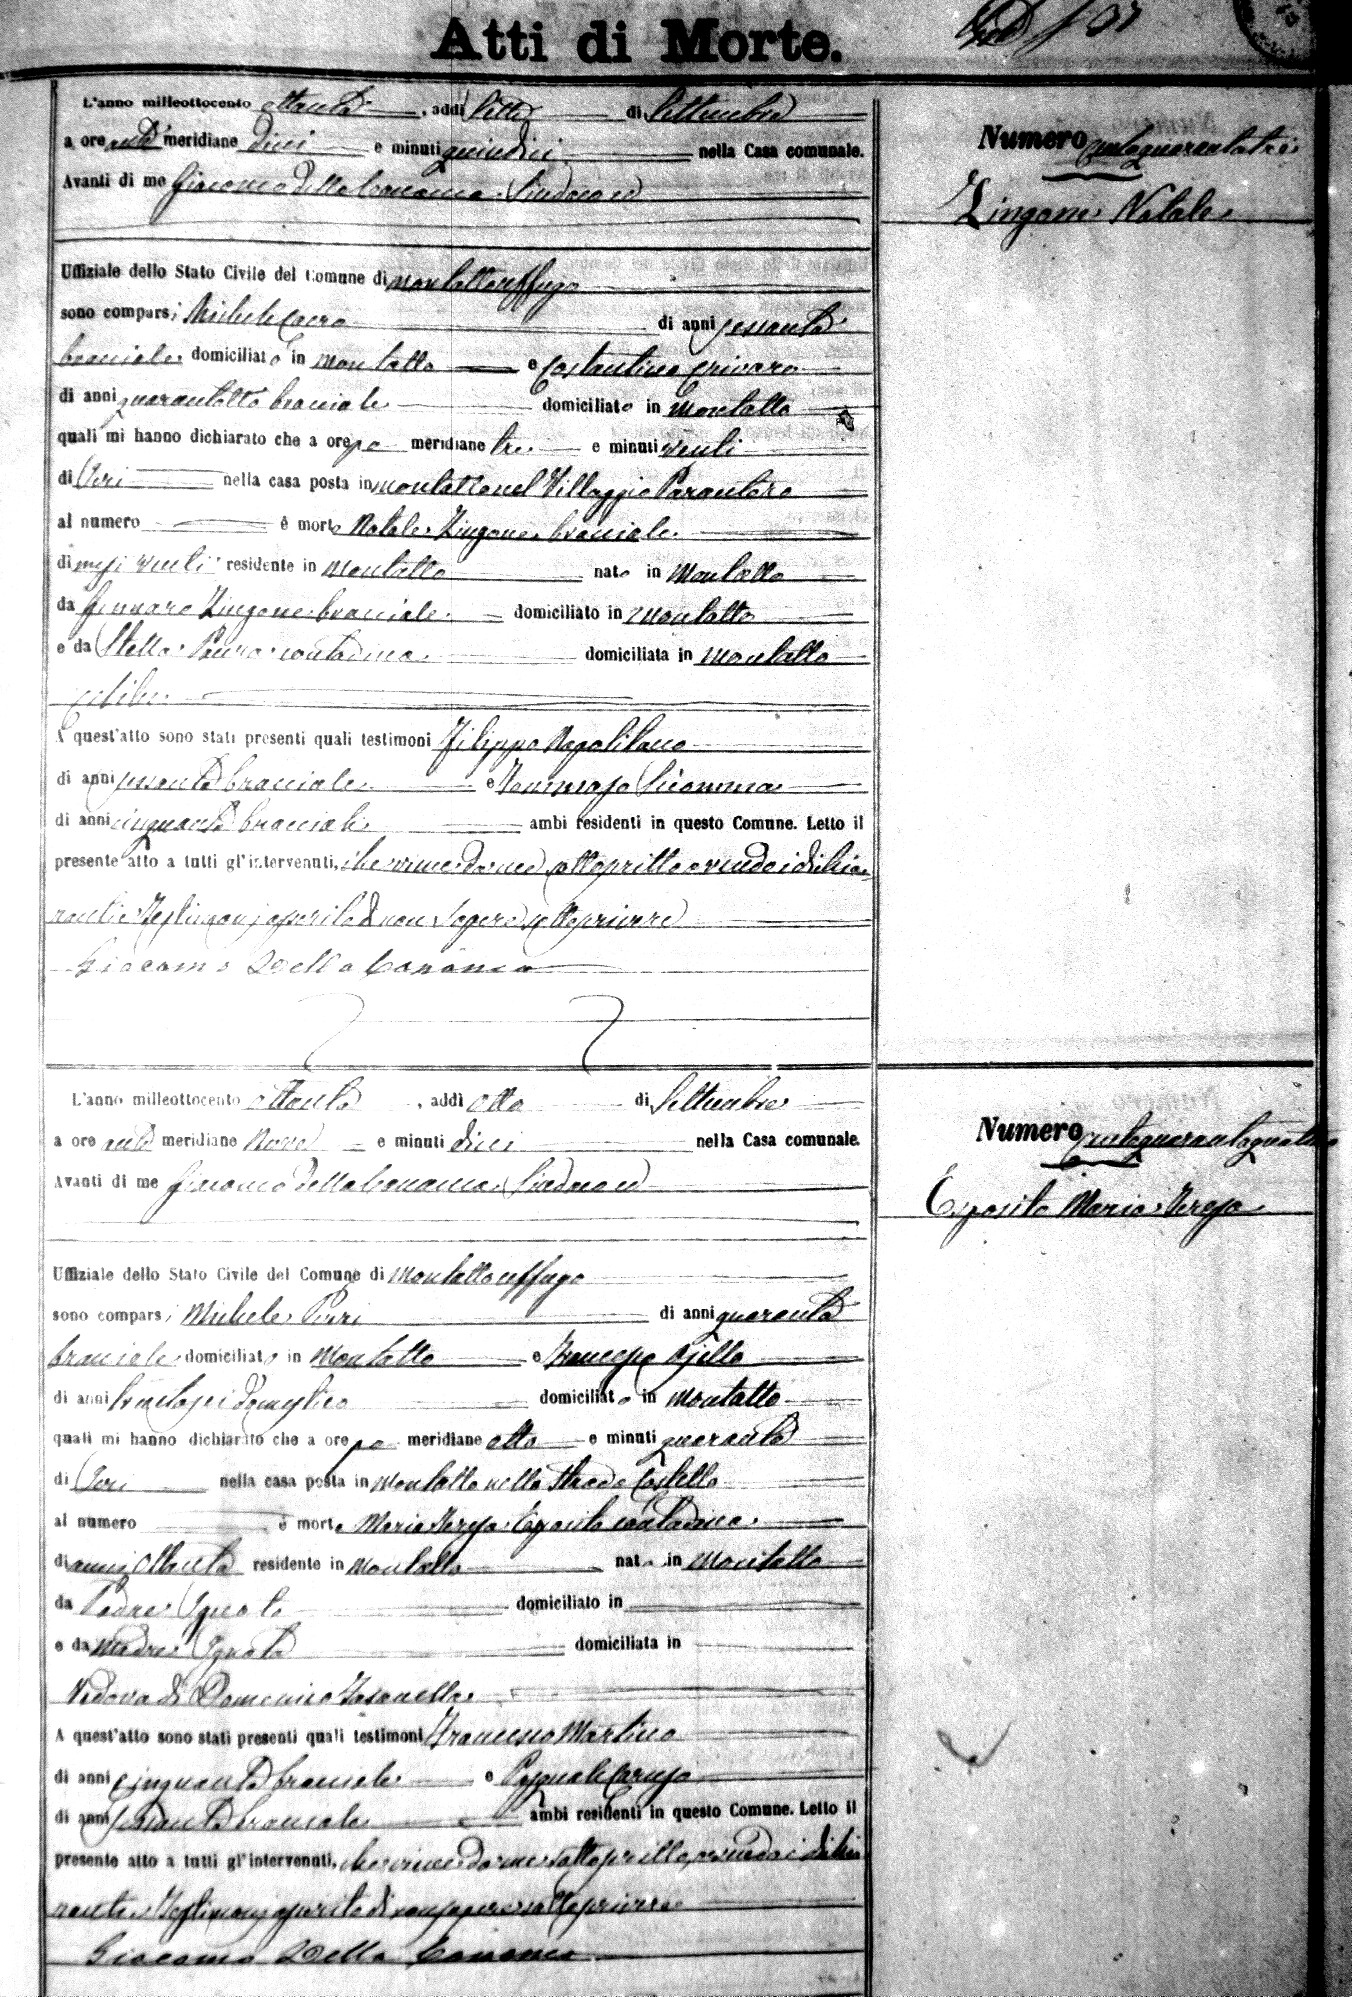 Atti di Morte.
L'anno milleottocento ottanta, addì sette di Settembre
a ore anti meridiane dieci e minuti quindici nella Casa comunale.
Avanti di me Giacomo della Cananea Sindaco ed
Uffiziale dello Stato Civile del Comune di Montalto Uffugo
sono comparsi Michele di anni sessanta
bracciale domiciliato in Montalto e Costantino Crivaro
di anni quarantotto bracciale domiciliato in Montalto
quali mi hanno dichiarato che a ore po meridiane tre e minuti venti
di Ieri nella casa posta in Montalto nel Villaggio Parantoro
al numero è morto Natale Zingone bracciale
di mesi venti residente in Montalto nato in Montalto
da Gennaro Zingone bracciale domiciliato in Montalto
e da Stella contadina domiciliata in Montalto
celibe
A quest'atto sono stati presenti quali testimoni Filippo Napolitano
di anni sessanta bracciale e Tommaso
di anni cinquanta bracciale ambi residenti in questo Comune. Letto il
presente atto a tutti gl'intervenuti, che viene da me sottoscritto avendo i dichia
ranti e Testimoni asserito di non sapere sottoscrivere
Giacomo Della Cananea
Numero centoquarantatre
Zingone Natale
L'anno milleottocento ottanta, addì otto di Settembre
a ore anti meridiane Nove e minuti dieci nella Casa comunale.
Avanti di me Giacomo della Cananea Sindaco ed
Uffiziale dello Stato Civile del Comune di Montalto Uffugo
sono comparsi Michele Pirri di anni quaranta
bracciale domiciliato in Montalto e Francesco Ajello
di anni trentasei domestico domiciliato in Montalto
quali mi hanno dichiarato che a ore po meridiane otto e minuti quaranta
di Ieri nella casa posta in Montalto nella Strada Castello
al numero è morta Maria Teresa Esposito contadina
di anni Ottanta residente in Montalto nata in Montalto
da Padre Ignoto domiciliato in
e da Madre Ignota domiciliata in
Vedova di Domenico
A quest'atto sono stati presenti quali testimoni Francesco Martino
di anni cinquanta bracciale e Pasquale Caruso
di anni sessanta bracciale ambi residenti in questo Comune. Letto il
presente atto a tutti gl'intervenuti, che viene da me sottoscritto, avendo i dichia
ranti e Testimoni asserito di non sapere sottoscrivere
Giacomo Della Cananea
Numero centoquarantaquattro
Esposito Maria Teresa